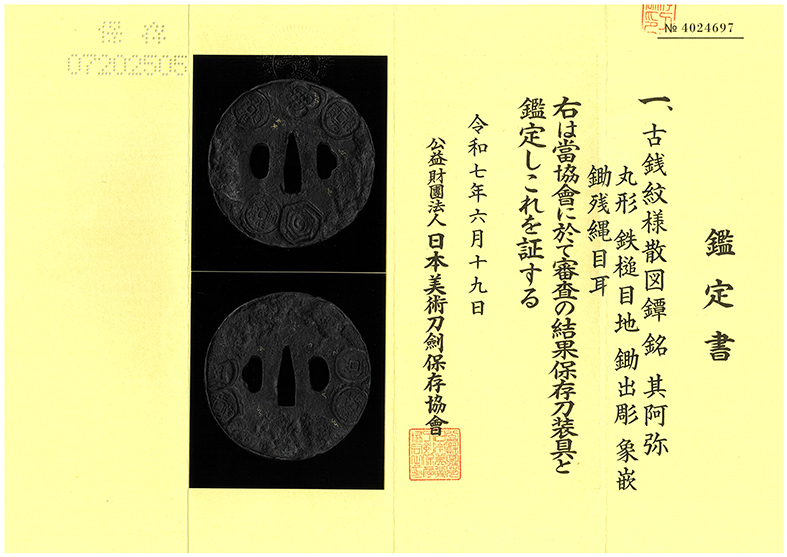 鑑定書
一、古銭紋様散図鐔 銘 其阿弥
丸形 鉄槌目地 鋤出彫 象嵌
鋤残縄目耳
右は當協會に於て審査の結果保存刀装具と
鑑定しこれを証する
令和七年六月十九日
公益財團法人 日本美術刀剣保存協會
№ 4024697
保存
07202505